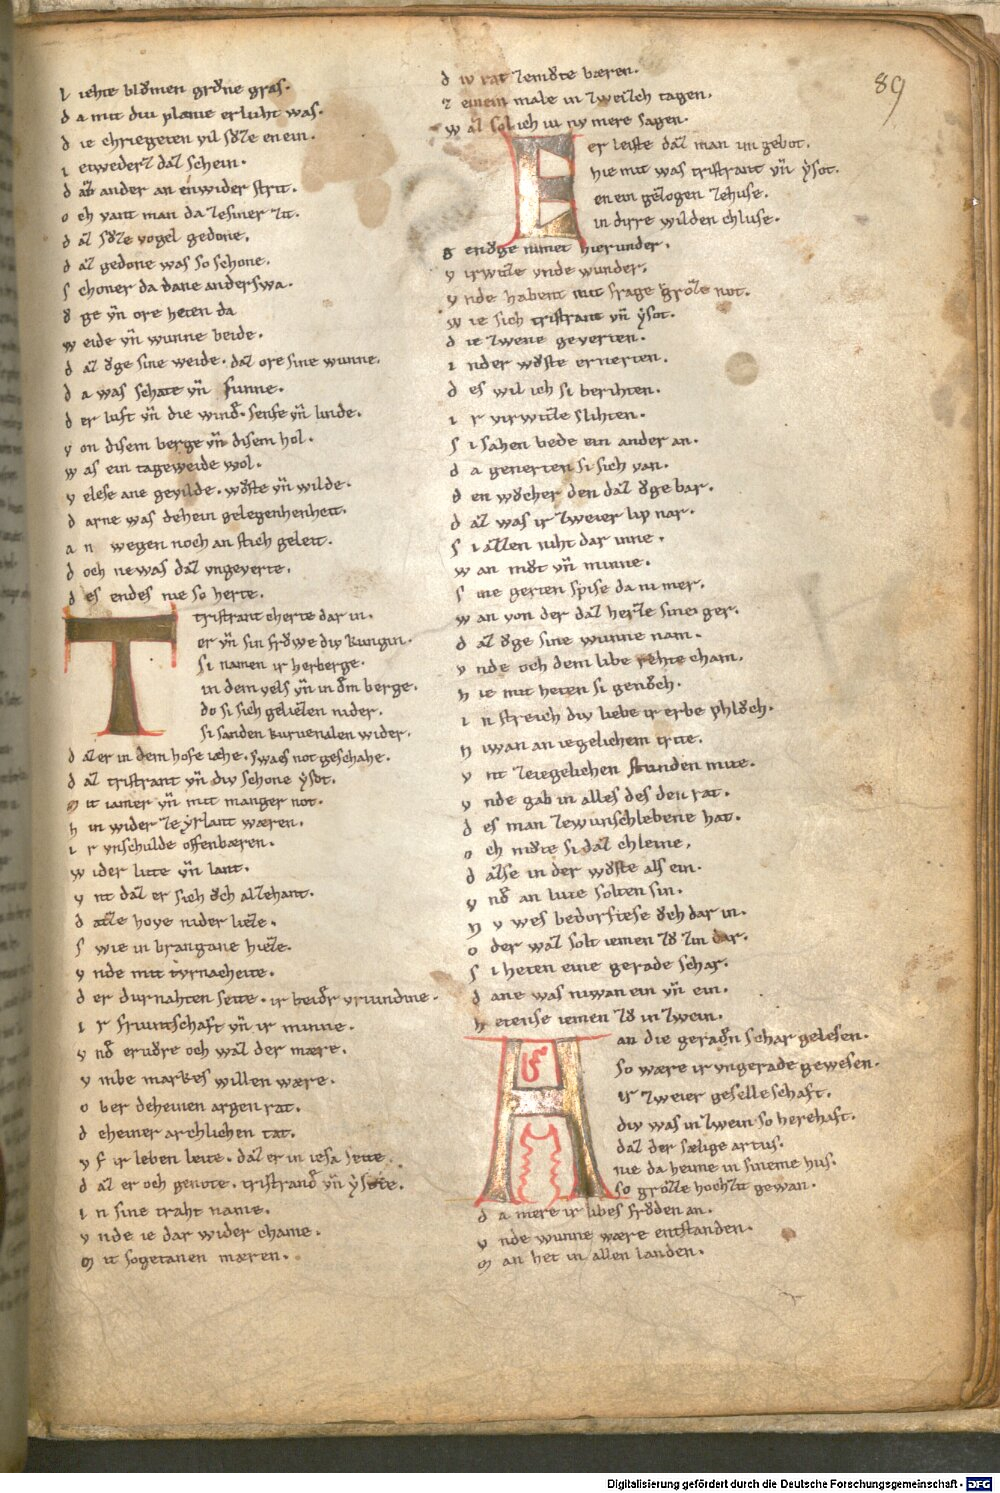 89
l iehte blůmen grůne gras.
d a mit diu plaine erluht was.
d ie chriegeten vil sůze en ein.
i etwederz daz schein.
d az ander an enwider strit.
o ch vant man da ze siner zit.
d az sůze vogel gedone.
d az gedone was so schone.
s choner da dane anderswa.
ů ge vn̄ ore heten da
w eide vn̄ wunne beide.
d az ůge sine weide. daz ore sine wunne.
d a was schate vn̄ sunne.
d er luft vn̄ die wind. senfte vn̄ linde.
v on disem berge vn̄ disem hol.
w as ein tageweide wol.
v elese ane gevilde. wůste vn̄ wilde.
d arne was dehein gelegenhenheit.
a n wegen noch an stich geleit.
d och newas daz ungeverte.
d es endes nie so herte.
T tristrant cherte dar in.
er vn̄ sin frůwe div kungin.
si namen ir herberge.
in dem vels vn̄ in dem berge.
do si sich geliezen nider.
si sanden kurvenalen wider.
d az er in dem hofe iehe. swas not geschahe.
d az tristrant vn̄ div schone ysot.
m it iamer vn̄ mit manger not.
h in wider ze yrlant wæren.
i r vnschulde offenbæren.
w ider lute vn̄ lant.
v nt daz er sich ůch allehant.
d atze hove nider lieze.
s wie in brangane hieze.
v nde mit tyrnacheite.
d er durnahten seite. ir beider vriundine.
i r friuntschaft vn̄ ir minne.
v nd ervůre och waz der mære.
v mbe markes willen wære.
o ber deheinen argen rat.
d eheiner archlichen tat.
v f ir leben leite. daz er in iesa seite.
d az er och genote. tristrand vn̄ ysote.
i n sine traht name.
v nde ie dar wider chame.
m it sogetanen mæren.
d iv rat zemůte bæren.
z einem male in zweinzch tagen.
w az sol ich iu nv mere sagen.
E er leiste daz man im gebot.
hie mit was tristrant vn̄ ysot.
en ein gezogen zehuse.
in dirre wilden chluse.
g enůge nimet hier under.
v irwitze vnde wunder.
v nde habent mit frage groze not.
w ie sich tristrant vn̄ ysot.
d ie zwene geverten.
i n der wůste ernerten.
d es wil ich si berihten.
i r virwitze slihten.
s i sahen bede ein ander an.
d a generten si sich van.
d en wůcher den daz ůge bar.
d az was ir zweier lip nar.
s i azzen niht dar inne.
w an můt vn̄ minne.
s ine gerten spise da ni mer.
w an von der daz herze sinei ger.
d az ůge sine wunne nam.
v nde och dem libe rehte cham.
h ie mit heten si genůch.
i n streich div liebe ir erbe phlůch.
n iwan an iegelichem trite.
v nt zeiegelichen stunden mite.
v nde gab in alles des den rat.
d es man zewunschlebene hat.
o ch můte si daz chleine,
d azse in der wůste als ein.
v nd an lute solten sin.
n v wes bedorftese ůch dar in.
o der waz solt iemen zů zin dar.
s i heten eine gerade schar.
d ane was niwan ein vn̄ ein.
h etense iemen zů in zwein.
A an die geraden schar gelesen.
so wære ir vngerade gewesen.
ir zweier geselleschaft.
div was in zwein so herehaft.
daz der sælige artus.
nie da heime in sineme hus.
so grozze hochzit gewan.
d a mere ir libes frůden an.
v nde wunne wære entstanden.
m an het in allen landen.
Digitalisierung gefördert durch die Deutsche Forschungsgemeinschaft - DFG